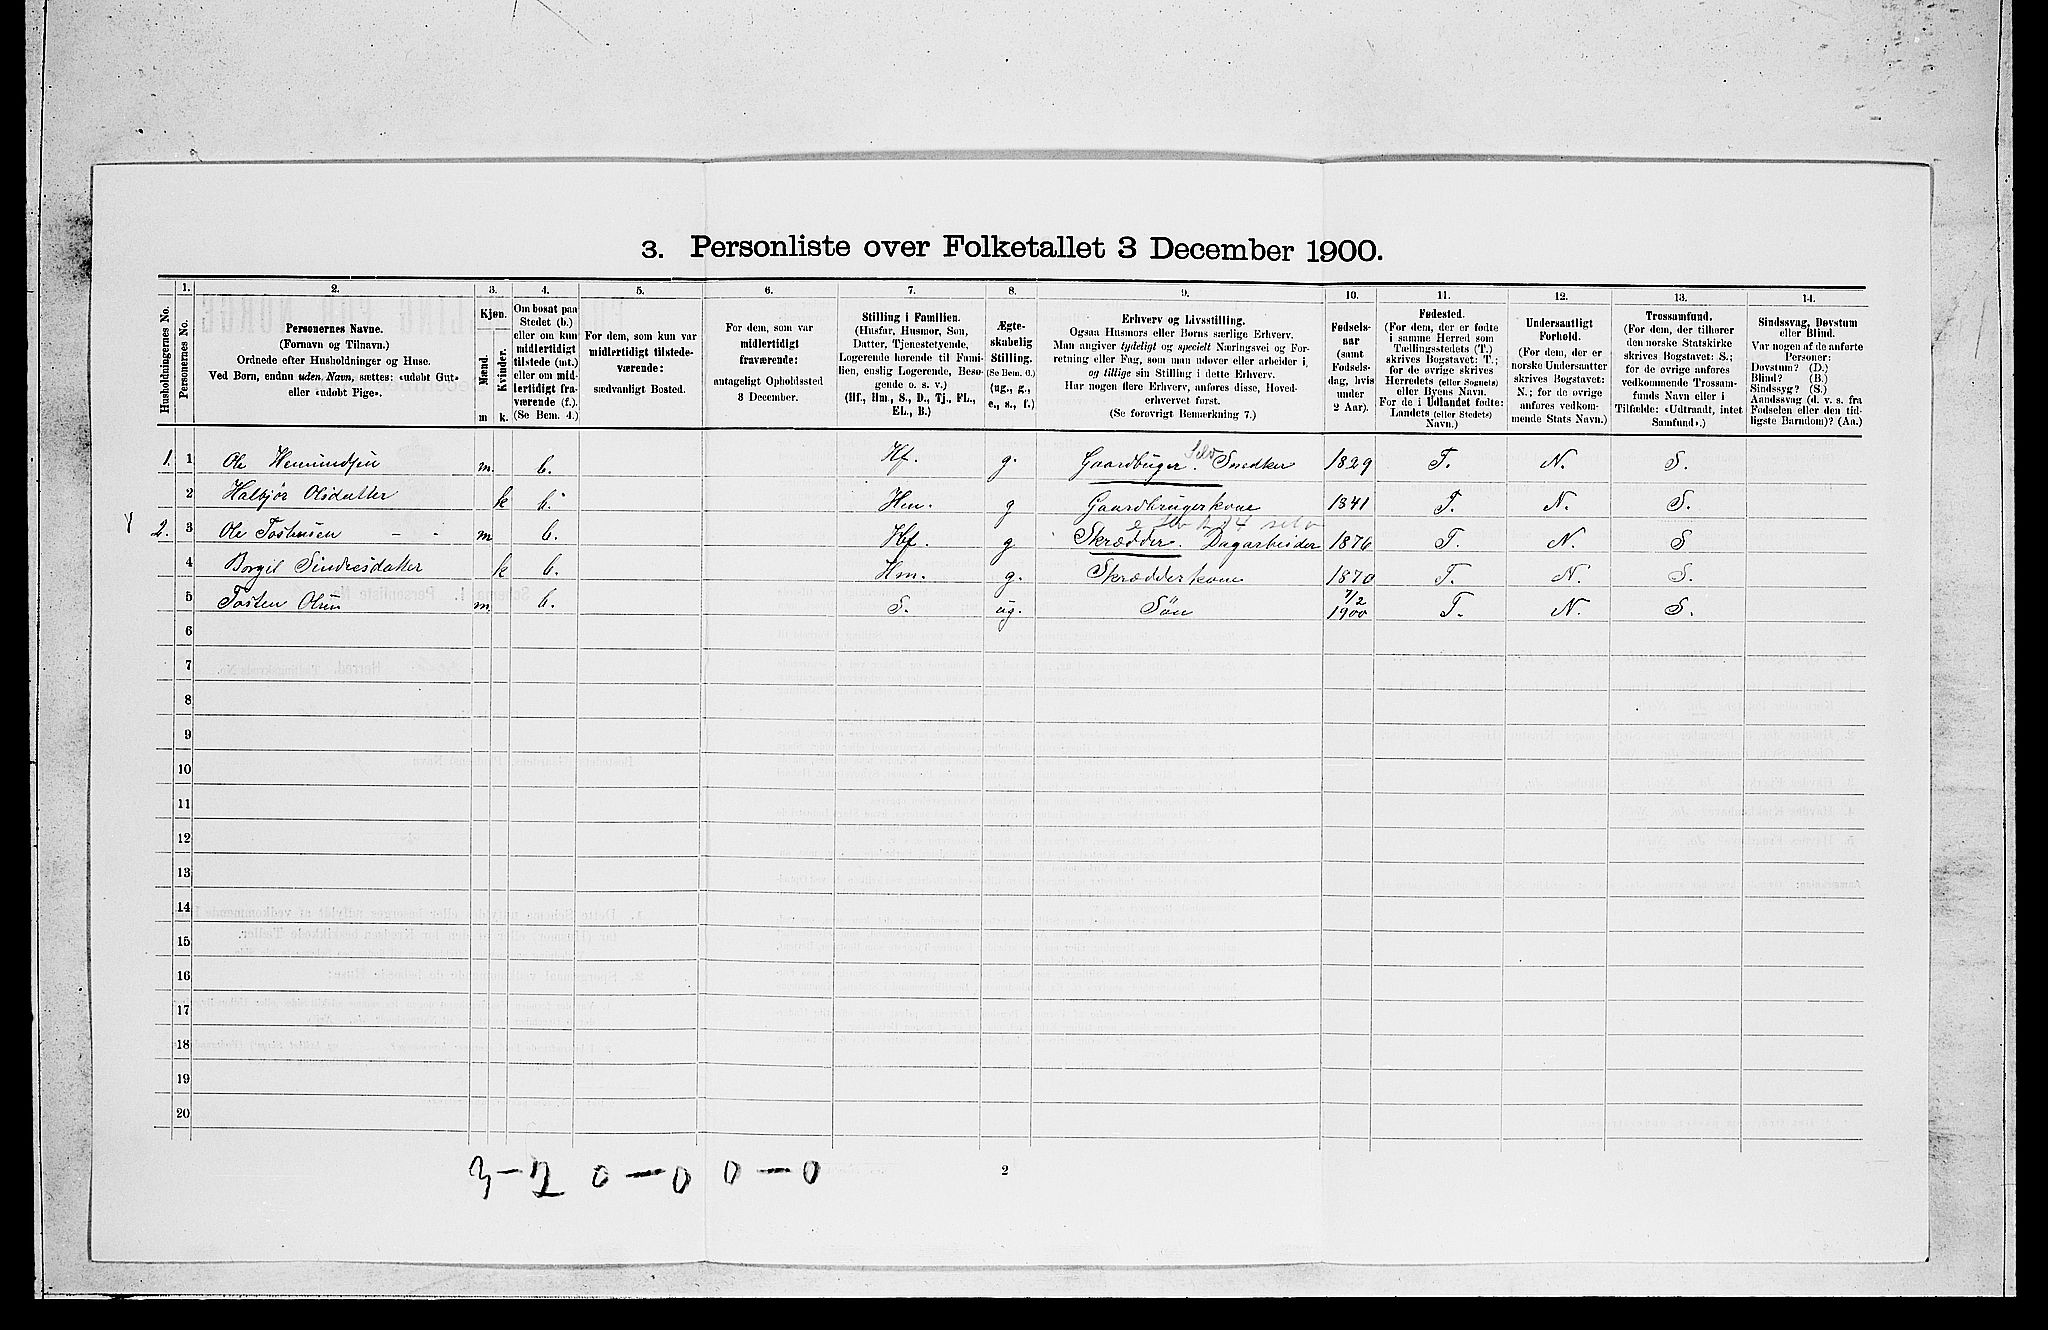 3. Personliste over Folketallet 3 December 1900.
1. 2. 3. 4. 5. 6. 7. 8. 9. 10. 11. 12. 13. 14.
Husholdningernes No.
Personernes No.
Personernes Navne.
(Fornavn og Tilnavn.)
Ordnede efter Husholdninger og Huse.
Ved Børn, endnu uden Navn, sættes: «udøbt Gut»
eller «udøbt Pige».
Kjøn.
Mænd.
Kvinder.
m k.
Om bosat paa
Stedet (b.)
eller om kun
midlertidigt
tilstede (mt.)
eller om mid-
lertidigt fra-
værende (f.).
(Se Bem. 4.)
For dem, som kun var
midlertidigt tilstede-
værende:
sædvanligt Bosted.
For dem, som var
midlertidigt
fraværende:
antageligt Opholdssted
3 December.
Stilling i Familien.
(Husfar, Husmor, Søn,
Datter, Tjenestetyende,
Logerende hørende til Fami-
lien, enslig Logerende, Besø-
gende o. s. v.)
(Hf., Hm., S., D., Tj., FL.,
EL., B.)
Ægte-
skabelig
Stilling.
(Se Bem. 6.)
(ug., g.,
e., s., f.)
Erhverv og Livsstilling.
Ogsaa Husmors eller Børns særlige Erhverv.
Man angiver tydeligt og specielt Næringsvei og For-
retning eller Fag, som man udøver eller arbeider i,
og tillige sin Stilling i dette Erhverv.
Har nogen flere Erhverv, anføres disse, Hoved-
erhvervet først.
(Se forøvrigt Bemerkning 7.)
Fødsels-
aar
(samt
Fødsels-
dag, hvis
under
2 Aar).
Fødested.
(For dem, der er fødte
i samme Herred som
Tællingsstedets (T.)
skrives Bogstavet: T.;
for de øvrige skrives
Herredets (eller Sognets)
eller Byens Navn.
For de i Udlandet fødte:
Landets (eller Stedets)
Navn.)
Undersaatligt
Forhold.
(For dem, der er
norske Undersaatter
skrives Bogstavet:
N.; for de øvrige
anføres vedkom-
mende Stats Navn.)
Trossamfund.
(For dem, der tilhører
den norske Statskirke
skrives Bogstavet: S.;
for de øvrige anføres
vedkommende Trossam-
funds Navn eller i
Tilfælde: «Udtraadt, intet
Samfund».)
Sindssvag, Døvstum
eller Blind.
Var nogen af de anførte
Personer:
Døvstum? (D.)
Blind? (B.)
Sindssyg? (S.)
Aandssvag (d. v. s. fra
Fødselen eller den tid-
ligste Barndom)? (Aa.)
1. 1 Ole Hemundsen m. b. Hf. g. Gaardbuger. Selv Snedker 1829 T. N. S.
2 Halbjør Olsdatter k b. Hm. g Gaardbrugerkone 1841 T. N. S.
2. 3 Ole Tostensen m b. Hf. g Skrædder. Dagarbeider 1876 T. N. S
4 Borgil Sindresdatter k b. Hm. g. Skrædderkone 1870 T. N. S.
5 Tosten Olsen m. b. S. ug. Søn 7/2 1900 T. N. S.
6
7
8
9
10
11
12
13
14
15
16
17
18
19
20
3-2 0-0 0-0
2